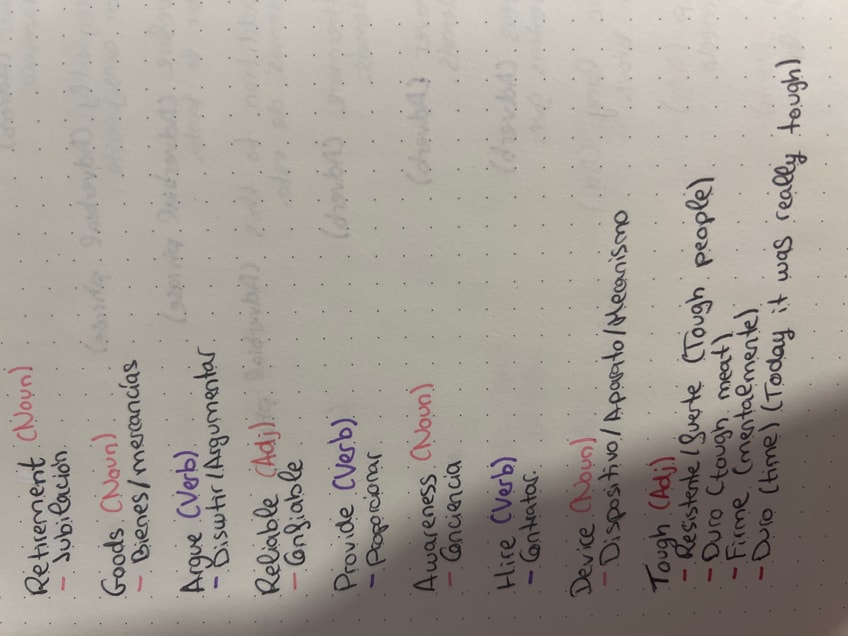 Retirement (Noun)
- Jubilación.
Goods (Noun)
- Bienes/mercancías
Argue (Verb)
- Disutir/Argumentar
Reliable (Adj)
- Confiable
Provide (Verb)
- Proporcionar
Awareness (Noun)
- Conciencia
Hire (Verb)
- Contratar.
Device (Noun)
- Dispositivo/Aparato/Mecanismo
Tough (Adj)
- Resistente/fuerte (Tough people)
- Duro (tough meat)
- Firme (mentalmente)
- Duro (time) (Today it was really tough)